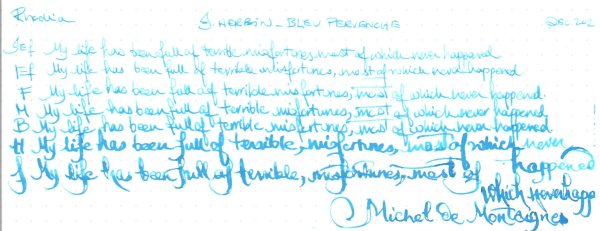 Rhodia J. HERBIN - BLEU PERVENCHE DEC. 202
EF My life has been full of terrible misfortunes, most of which never happened
EF My life has been full of terrible misfortunes, most of which never happened
F My life has been full of terrible misfortunes, most of which never happened.
M My life has been full of terrible misfortunes, most of which never happened
B My life has been full of terrible misfortunes, most of which never happened
My life has been full of terrible, misfortunes, most of which never
happened
My life has been full of terrible, misfortunes, most of
which never happe
Michel de Montaigne